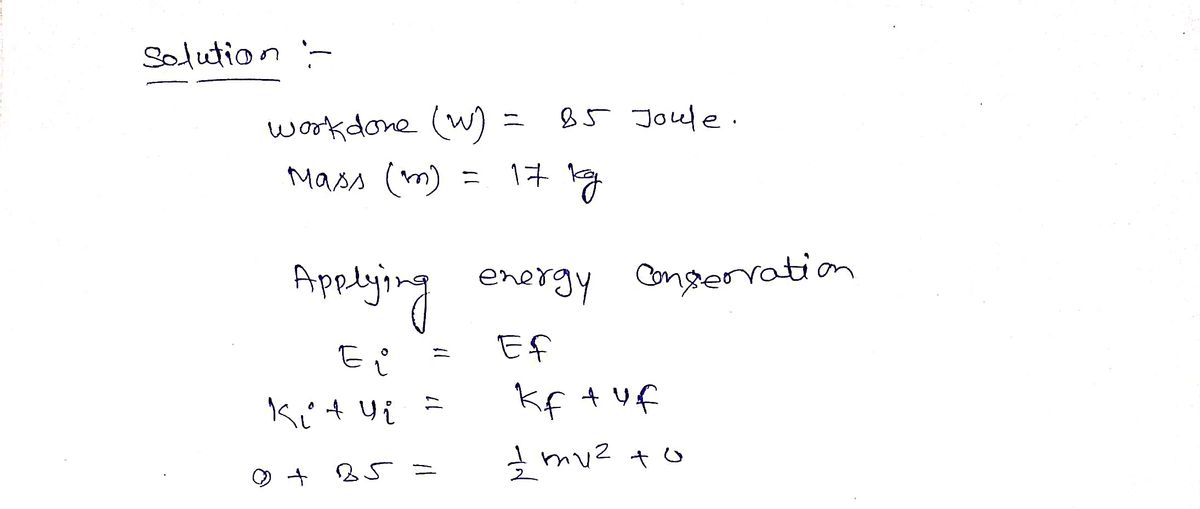 Solution :-
Workdone (W) = 85 Joule.
Mass (m) = 17 kg
Applying energy conservation
Ei = Ef
Ki + Ui = Kf + Uf
0 + 85 = 1/2 mv² + 0